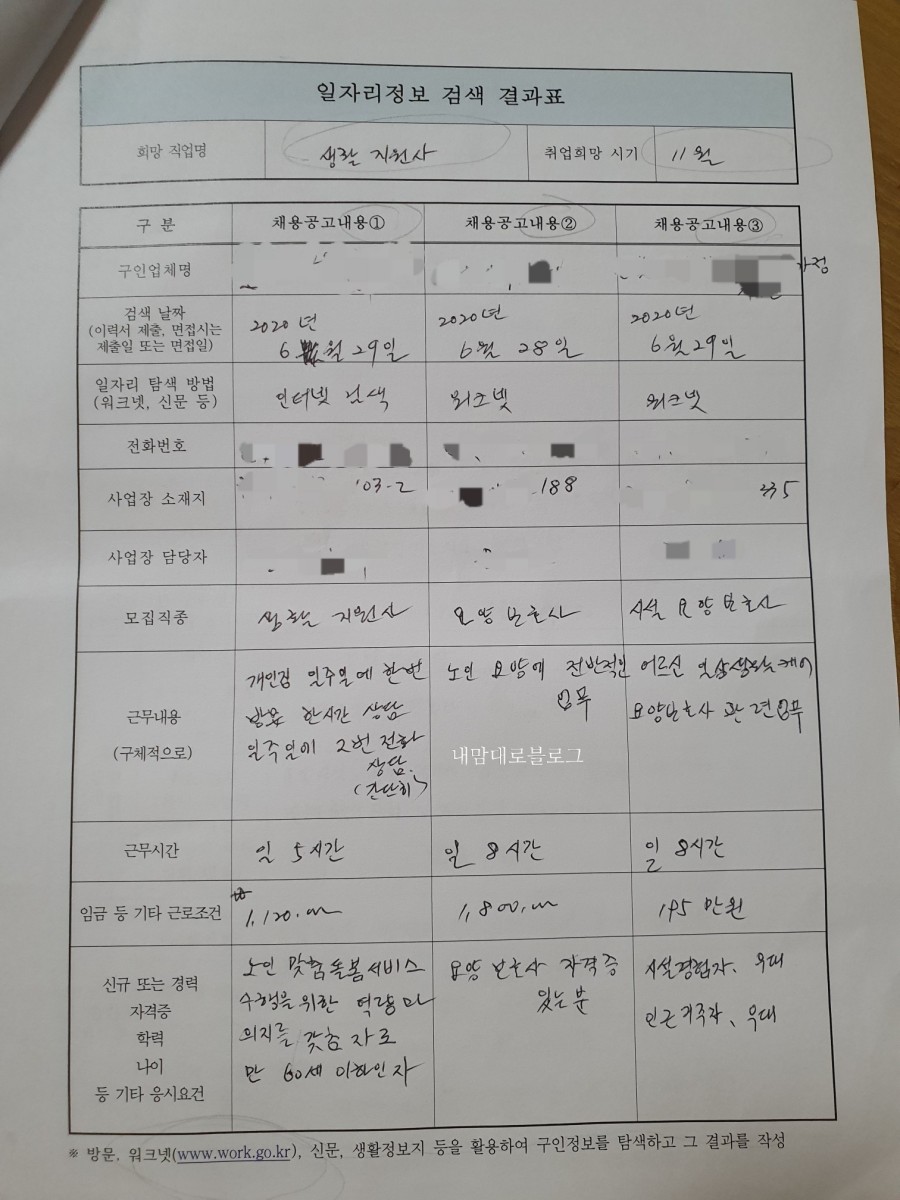 일자리정보 검색 결과표
희망 직업명 생활 지원사 취업희망 시기 11월
구 분 채용공고내용① 채용공고내용② 채용공고내용③
구인업체명
가정
검색 날짜
(이력서 제출, 면접시는
제출일 또는 면접일)
2020년
6월 29일
2020년
6월 28일
2020년
6월 29일
일자리 탐색 방법
(워크넷, 신문 등)
인터넷
워크넷
워크넷
전화번호
사업장 소재지
03-2
188
사업장 담당자
모집직종 생활 지원사 요양보호사 시설 요양보호사
근무내용
(구체적으로)
개인집 일주일에 한번
방문 한시간 상담
일주일에 2번 전화
상담.
(간단히)
노인 요양에 전반적인
업무
어르신 일상생활케어
요양보호사 관련업무
내맘대로블로그
근무시간 일 5시간 일 8시간 일 8시간
임금 등 기타 근로조건 195 만원
신규 또는 경력
자격증
학력
나이
등 기타 응시요건
노인 맞춤돌봄서비스
수행을 위한 역량과
의지를 갖춘 자로
만 60세 이하인 자
요양보호사 자격증
있는 분
시설경험자, 우대
인근거주자, 우대
※ 방문, 워크넷(www.work.go.kr), 신문, 생활정보지 등을 활용하여 구인정보를 탐색하고 그 결과를 작성